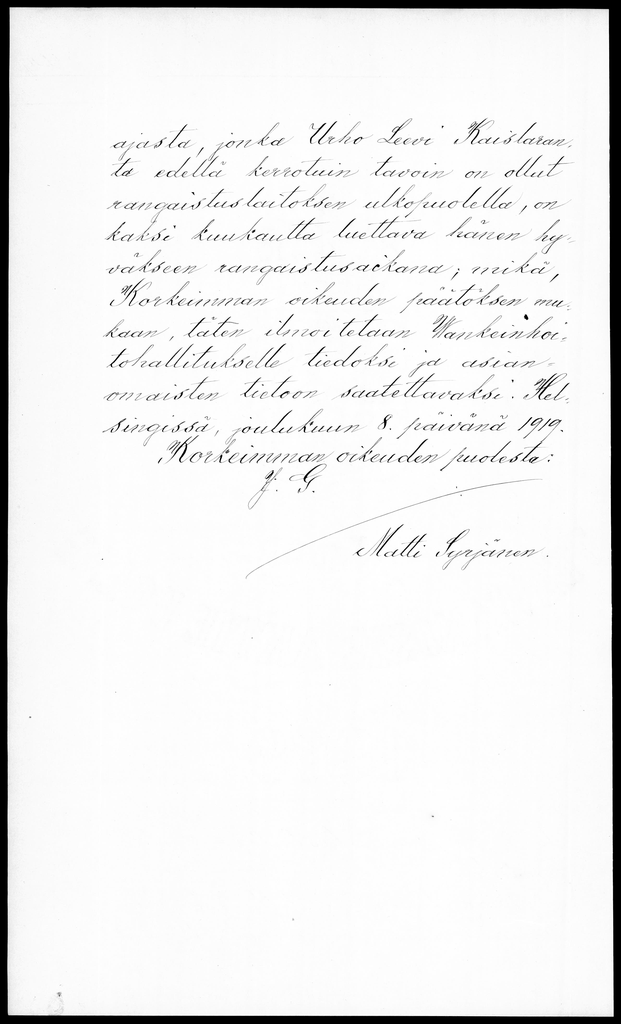 ajasta, jonka Urho Leevi Kaislaran-
ta edellä kerrotuin tavoin on ollut
rangaistuslaitoksen ulkopuolella, on
kaksi kuukautta luettava hänen hy-
väkseen rangaistusaikana; mikä,
Korkeimman oikeuden päätöksen mu-
kaan, täten ilmoitetaan Wankeinhoi-
tohallitukselle tiedoksi ja asian-
omaisten tietoon saatettavaksi. Hel-
singissä, joulukuun 8. päivänä 1919.
Korkeimman oikeuden puolesta:
Y. G.
Matti Syrjänen.